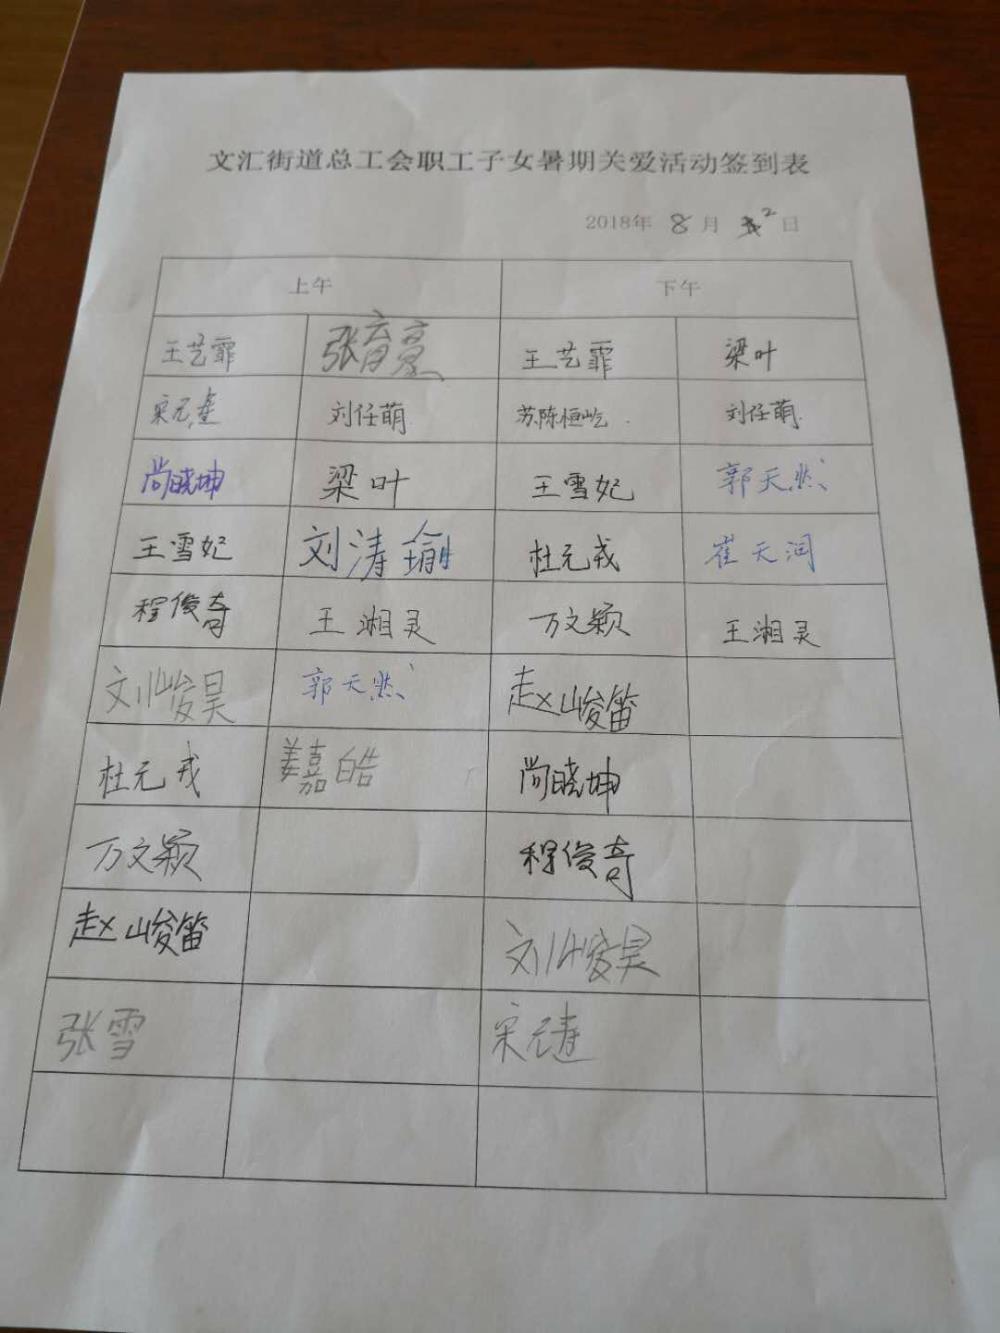 文汇街道总工会职工子女暑期关爱活动签到表
2018年 8 月 2 日
上午 下午
王艺霏 张育豪 王艺霏 梁叶
宋元 刘任萌 苏陈桓屹 刘任萌
尚晓坤 梁叶 王雪妃 郭天然
王雪妃 刘涛瑜 杜元戎 崔天润
程俊奇 王湘灵 万文颖 王湘灵
刘峻昊 郭天然 赵峻笛
杜元戎 姜嘉皓 尚晓坤
万文颖 程俊奇
赵峻笛 刘峻昊
张雪 宋元